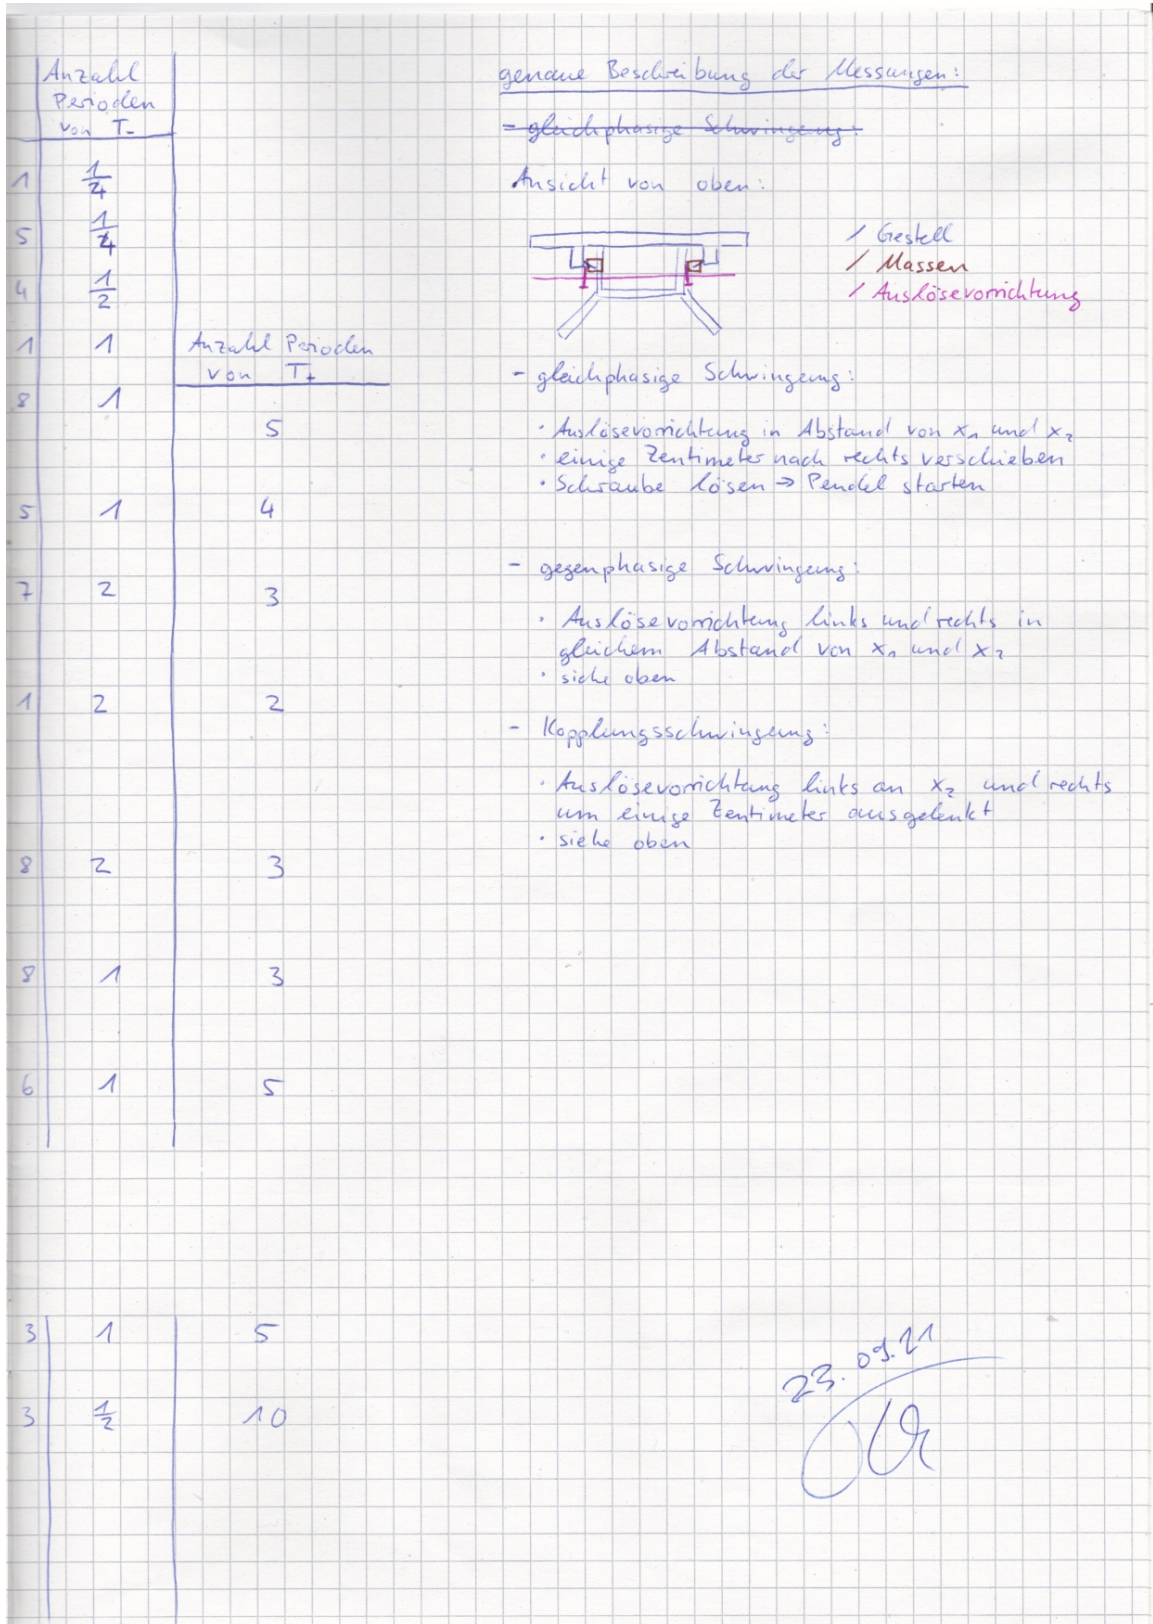 Anzahl
Perioden
von T_
1 1/4
5 1/4
4 1/2
1 1
Anzahl Perioden
von T+
8 1
5
5 1 4
7 2 3
1 2 2
8 2 3
8 1 3
6 1 5
3 1 5
3 1/2 10
genaue Beschreibung der Messungen:
- gleichphasige Schwingung:
Ansicht von oben:
/ Gestell
/ Massen
/ Auslösevorrichtung
- gleichphasige Schwingung:
· Auslösevorrichtung in Abstand von x₁ und x₂
· einige Zentimeter nach rechts verschieben
· Schraube lösen → Pendel starten
- gegenphasige Schwingung:
· Auslösevorrichtung links und rechts in
gleichem Abstand von x₁ und x₂
· siehe oben
- Kopplungsschwingung:
· Auslösevorrichtung links an x₂ und rechts
um einige Zentimeter ausgelenkt
· siehe oben
23.09.21